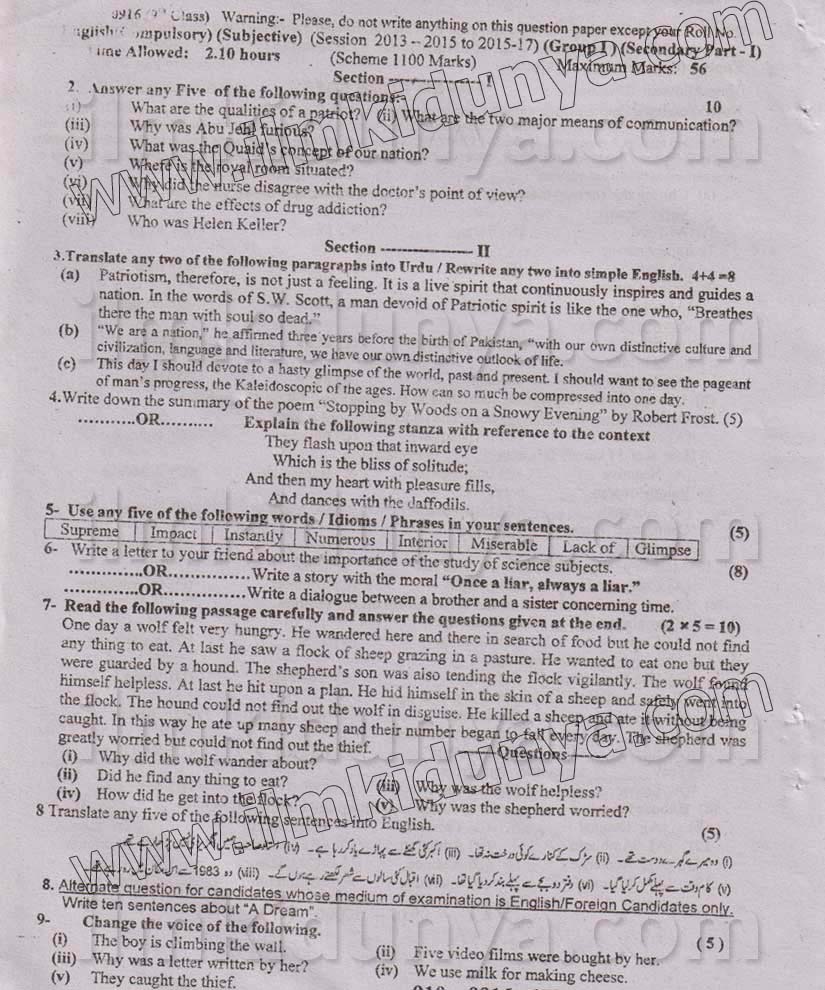 Class) Warning:- Please, do not write anything on this question paper except your Roll No.
(Subjective) (Session 2013 – 2015 to 2015-17) (Group I) (Secondary Part - I)
Allowed: 2.10 hours (Scheme 1100 Marks) Maximum Marks: 56
Section ------------- I
2. Answer any Five of the following questions:- 10
What are the qualities of a patriot? (ii) What are the two major means of communication?
(iii) Why was Abu Jehl furious?
(iv) What was the Quaid's concept of our nation?
(v) Where is the royal room situated?
(vi) Why did the nurse disagree with the doctor's point of view?
(vii) What are the effects of drug addiction?
(viii) Who was Helen Keller?
Section ------------- II
3.Translate any two of the following paragraphs into Urdu / Rewrite any two into simple English. 4+4=8
(a) Patriotism, therefore, is not just a feeling. It is a live spirit that continuously inspires and guides a
nation. In the words of S.W. Scott, a man devoid of Patriotic spirit is like the one who, "Breathes
there the man with soul so dead."
(b) "We are a nation," he affirmed three years before the birth of Pakistan, "with our own distinctive culture and
civilization, language and literature, we have our own distinctive outlook of life.
(c) This day I should devote to a hasty glimpse of the world, past and present. I should want to see the pageant
of man's progress, the Kaleidoscopic of the ages. How can so much be compressed into one day.
4.Write down the summary of the poem "Stopping by Woods on a Snowy Evening" by Robert Frost. (5)
...........OR.......... Explain the following stanza with reference to the context
They flash upon that inward eye
Which is the bliss of solitude;
And then my heart with pleasure fills,
And dances with the daffodils.
5- Use any five of the following words / Idioms / Phrases in your sentences. (5)
Supreme Impact Instantly Numerous Interior Miserable Lack of Glimpse
6- Write a letter to your friend about the importance of the study of science subjects. (8)
..............OR............... Write a story with the moral "Once a liar, always a liar."
..............OR............... Write a dialogue between a brother and a sister concerning time.
7- Read the following passage carefully and answer the questions given at the end. (2 × 5 = 10)
One day a wolf felt very hungry. He wandered here and there in search of food but he could not find
any thing to eat. At last he saw a flock of sheep grazing in a pasture. He wanted to eat one but they
were guarded by a hound. The shepherd's son was also tending the flock vigilantly. The wolf found
himself helpless. At last he hit upon a plan. He hid himself in the skin of a sheep and safely went into
the flock. The hound could not find out the wolf in disguise. He killed a sheep and ate it without being
caught. In this way he ate up many sheep and their number began to fall every day. The shepherd was
greatly worried but could not find out the thief. ----- Questions -----
(i) Why did the wolf wander about?
(ii) Did he find any thing to eat? (iii) Why was the wolf helpless?
(iv) How did he get into the flock? (v) Why was the shepherd worried?
8 Translate any five of the following sentences into English. (5)
(i) وہ میرے گہرے دوست تھے۔ (ii) سڑک کے کنارے کوئی درخت نہ تھا۔ (iii) اکبر کئی گھنٹے سے پہاڑے یاد کر رہا ہے۔ (iv)
(v) کام وقت سے پہلے مکمل کر لیا گیا۔ (vi) دفتر دو بجے سے پہلے بند کر دیا گیا تھا۔ (vii) اقبال کئی سالوں سے شعر لکھتے رہے ہوں گے۔ (viii) وہ 1983 سے
8. Alternate question for candidates whose medium of examination is English/Foreign Candidates only.
Write ten sentences about "A Dream".
9- Change the voice of the following. (5)
(i) The boy is climbing the wall. (ii) Five video films were bought by her.
(iii) Why was a letter written by her? (iv) We use milk for making cheese.
(v) They caught the thief.
www.ilmkidunya.com
www.ilmkidunya.com